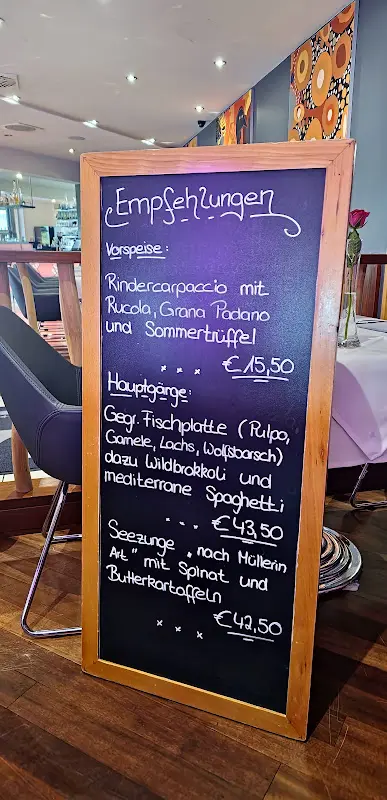 Empfehlungen
Vorspeise:
Rindercarpaccio mit
Rucola, Grana Padano
und Sommertrüffel
x x x € 15,50
Hauptgärge:
Gegr. Fischplatte (Pulpo,
Gamele, Lachs, Wolfsbarsch)
dazu Wildbrokkoli und
mediterrane Spaghetti
- - - € 43,50
Seezunge „nach Müllerin
Art" mit Spinat und
Butterkartoffeln
x x x € 42,50